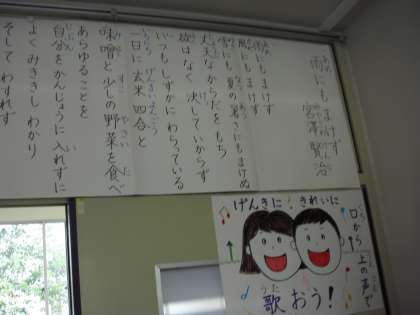 雨にもまけず
宮澤 賢治
雨にもまけず
風にもまけず
雪にも 夏の暑さにもまけぬ
丈夫なからだをもち
欲はなく 決していからず
いつも しずかに わらっている
一日に 玄米 四合と
味噌と 少しの野菜を食べ
あらゆることを
自分を かんじょうに 入れずに
よく みききし わかり
そして わすれず
げんきに!きれいに
口から上の声で
歌おう!